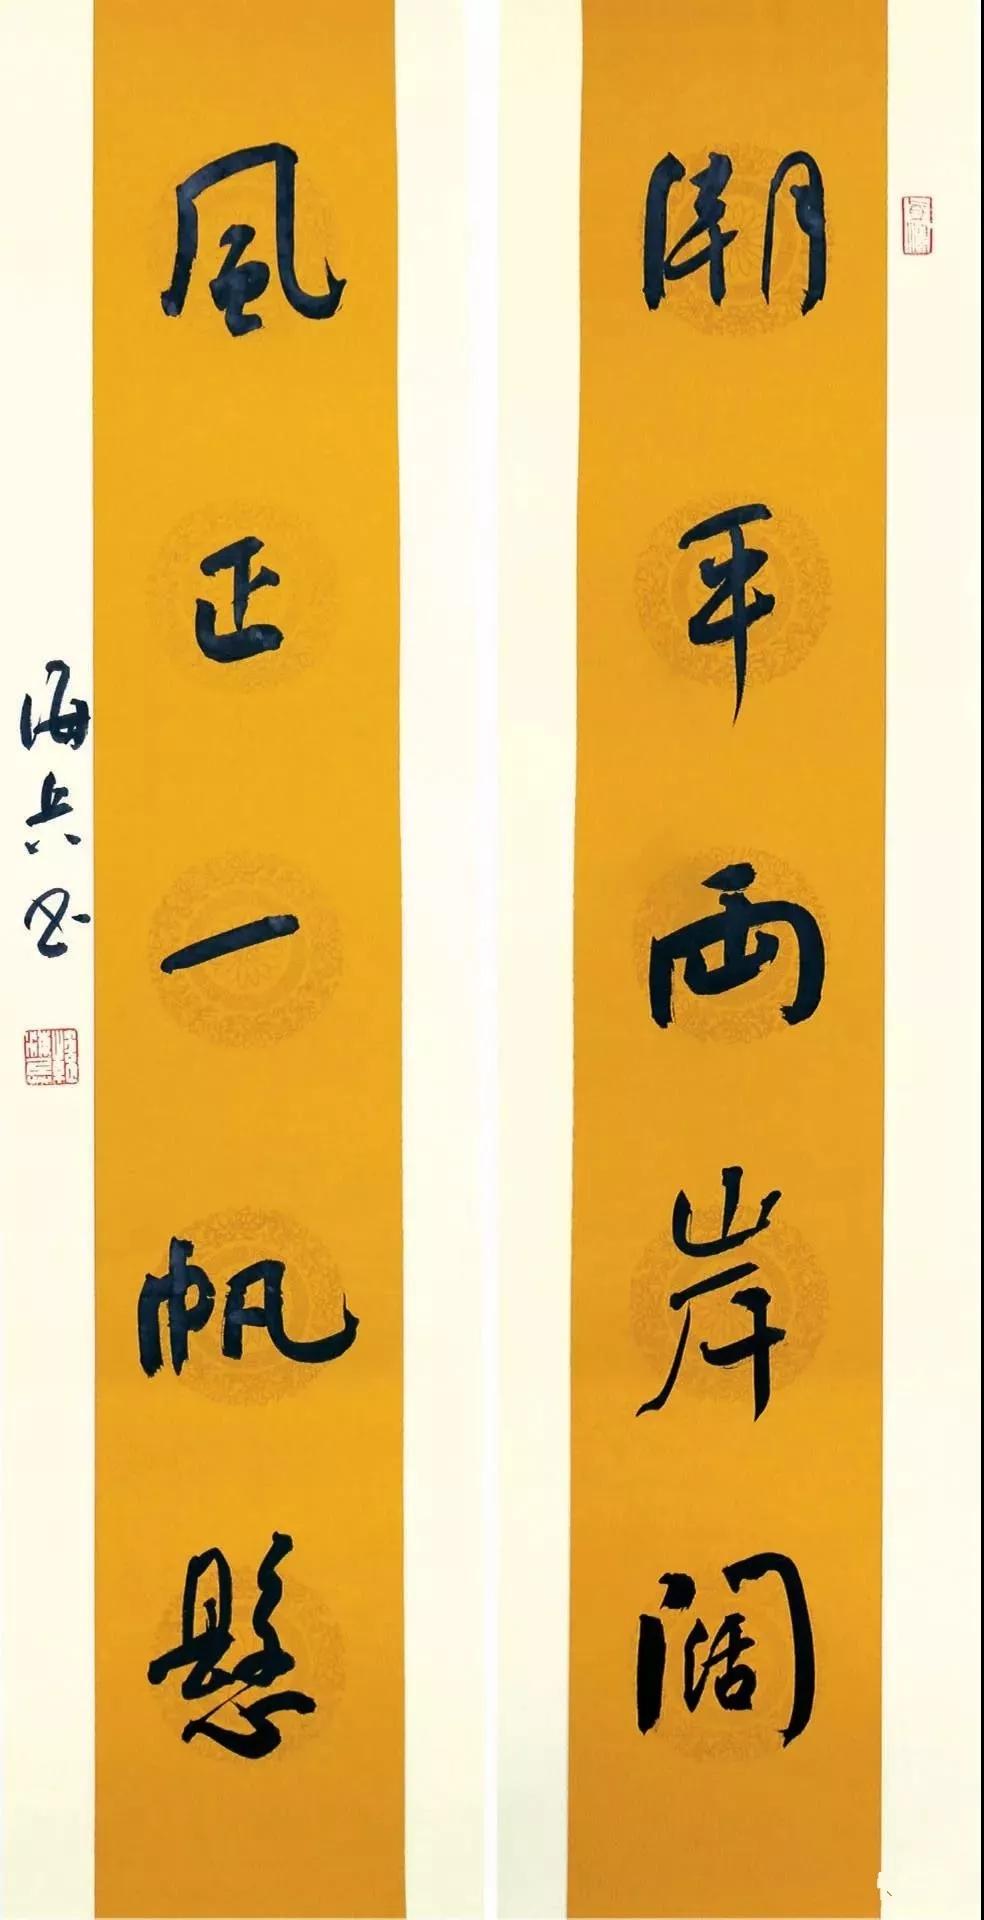 潮平両岸闊
風正一帆懸
海兵书